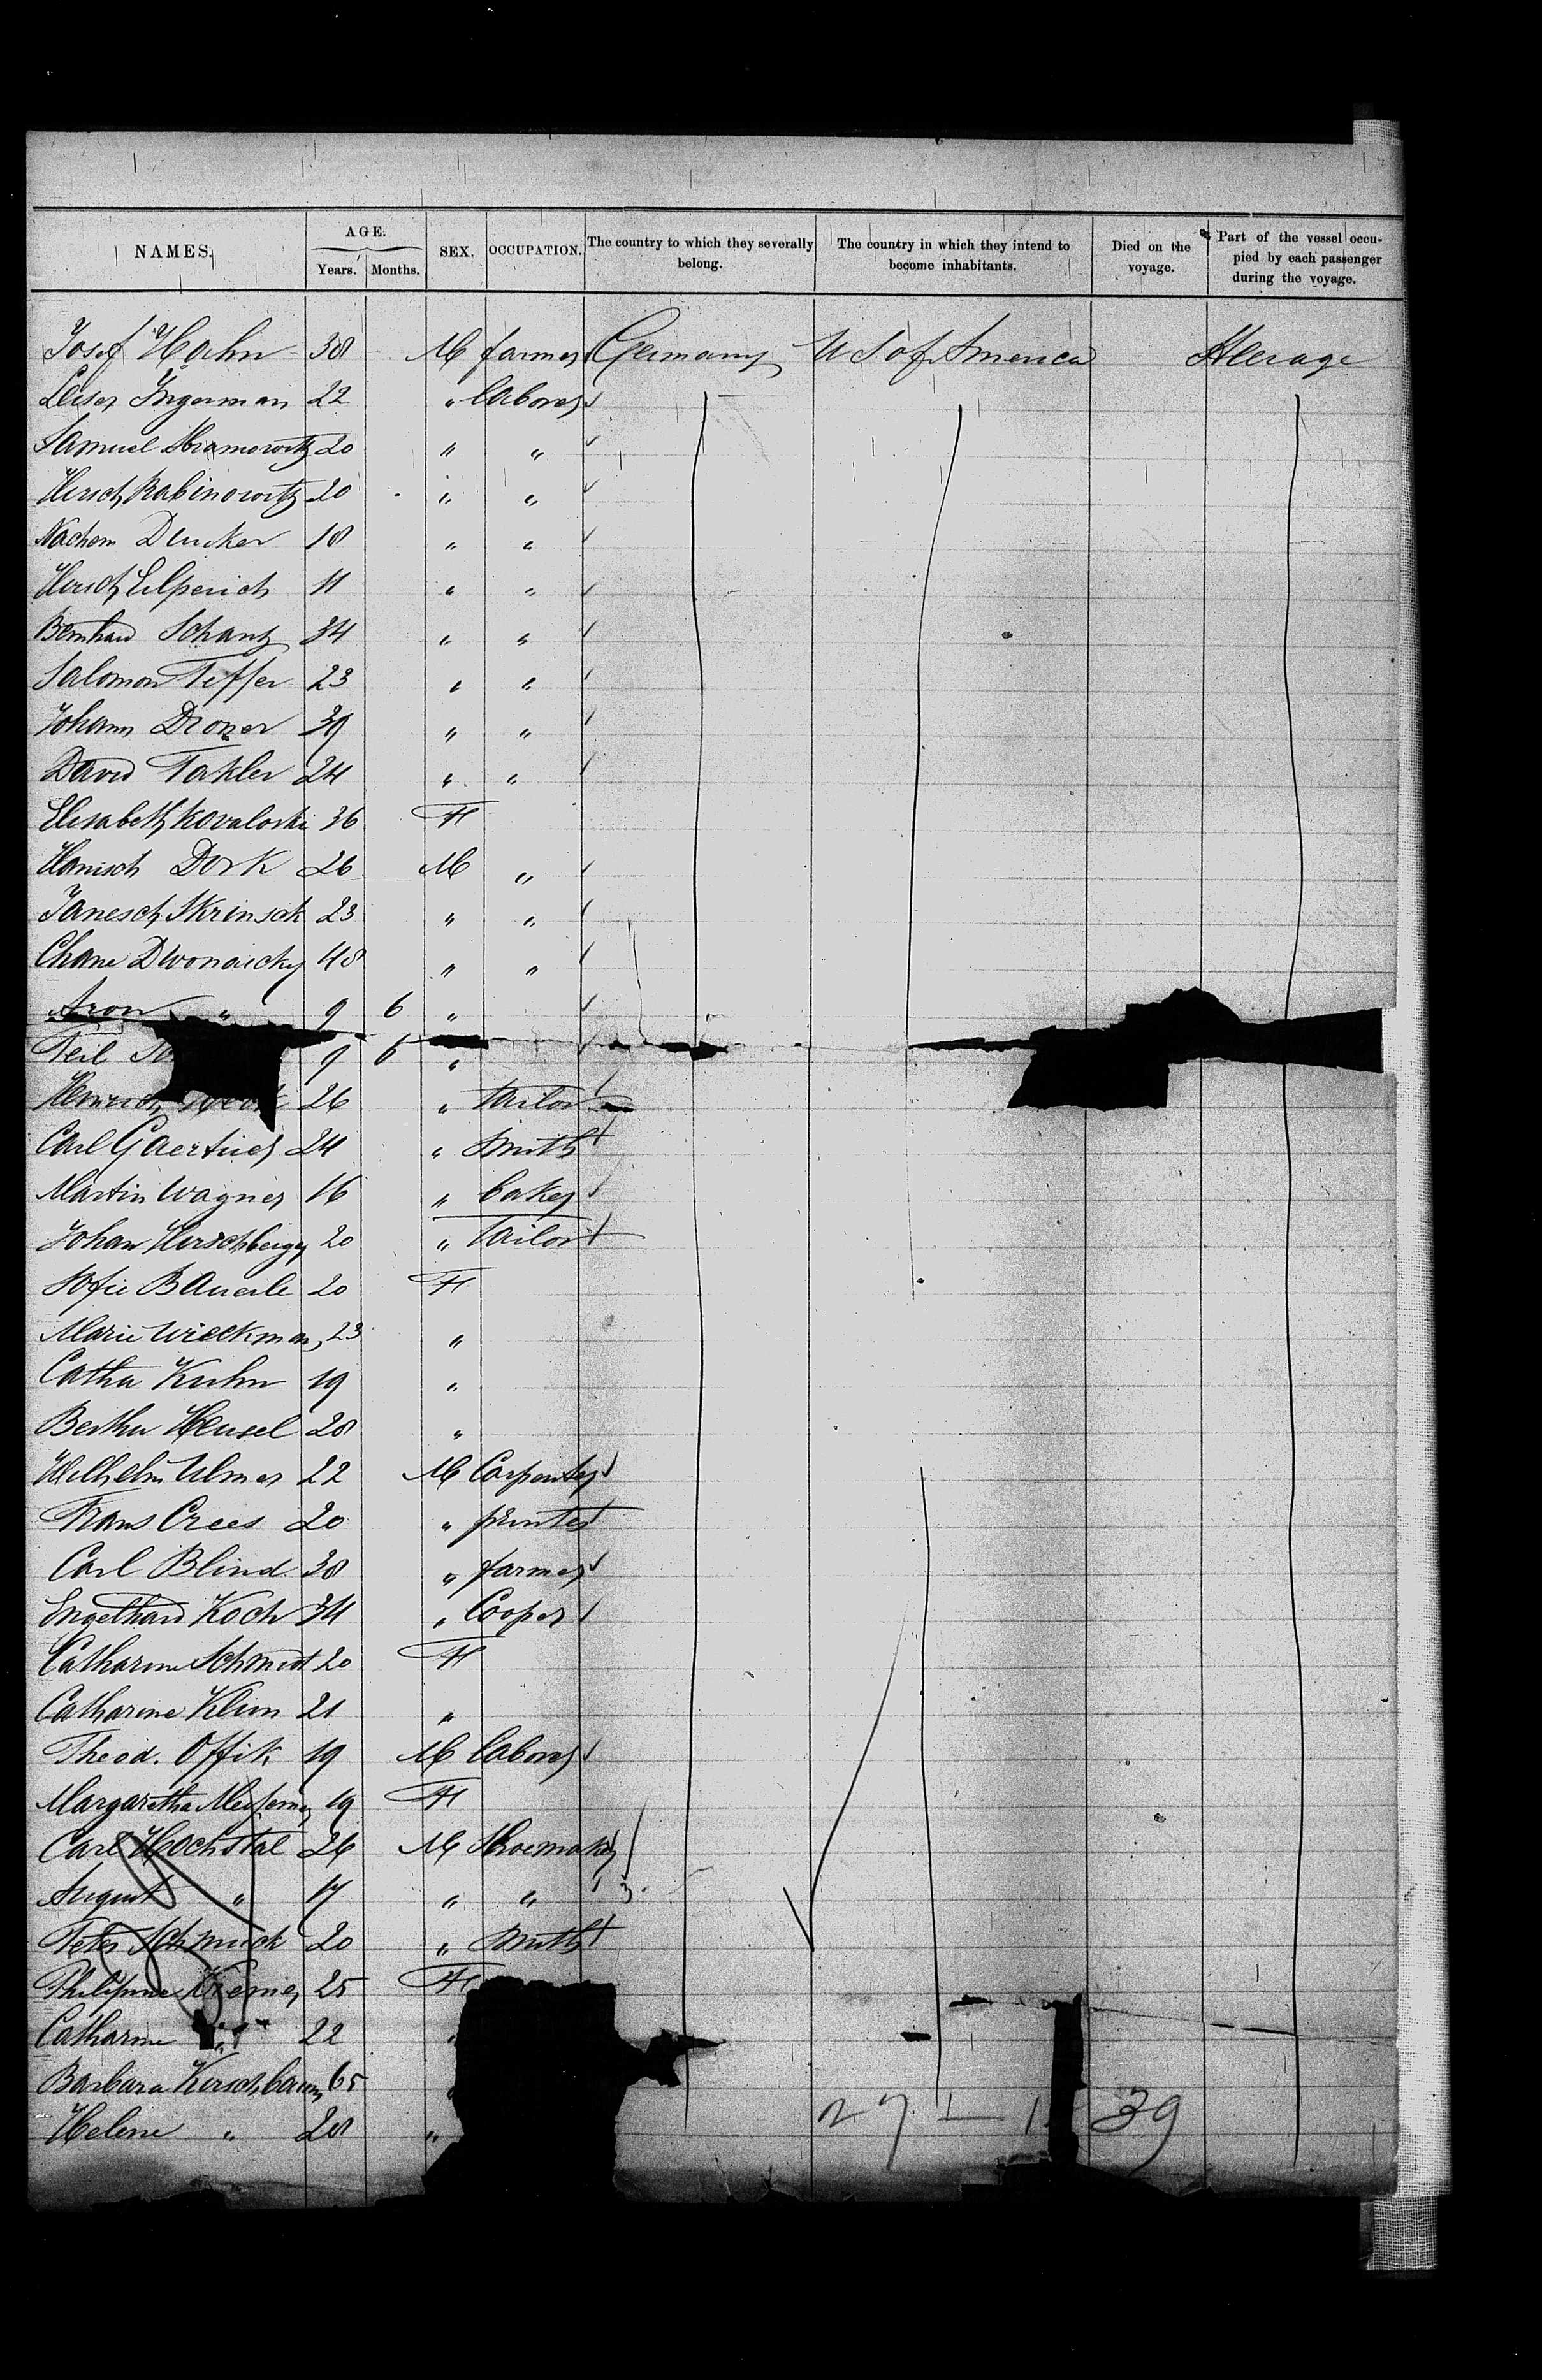 NAMES. AGE. Years. Months. SEX. OCCUPATION. The country to which they severally belong. The country in which they intend to become inhabitants. Died on the voyage. Part of the vessel occupied by each passenger during the voyage.
Josef Hahn 38 M farmer Germany U S of America Steerage
Leiser Ingerman 22 " laborer
Samuel Abramowitz 20 " "
Hirsch Rabinowitz 20 " "
Nachem Drucker 18 " "
Hirsch 11 " "
Bernhard Schantz 34 " "
Salomon Teffer 23 " "
Johann Droner 39 " "
David Takler 24 " "
Elisabeth Kovaloski 36 F
Hanisch Dork 26 M "
Janesch Skrinsck 23 " "
Chane Dwonaicky 48 " "
Aron " 9 6 "
Feil 9 6 "
Heinrich 26 " tailor
Carl Gaertner 24 " smith
Martin Wagner 16 " baker
Johan Hirschberger 20 " tailor
Sofie Bauerle 20 F
Marie Wieckman 23 "
Catha Kuhn 19 "
Bertha Hensel 28 "
Wilhelm Ulmer 22 M Carpenter
Franz Crees 20 " printer
Carl Blind 38 " farmer
Engelhard Koch 34 " Cooper
Catharine Schmidt 20 F
Catharine Klein 21 "
Theod. Offik 19 M laborer
Margaretha 19 F
Carl Hochstal 26 M Shoemaker
August " 17 " " 3.
Peter Schmuck 20 " smith
Philipine Kremer 25 F
Catharine " 22 "
Barbara Kirschbaum 65
Helene " 28 "
27 39